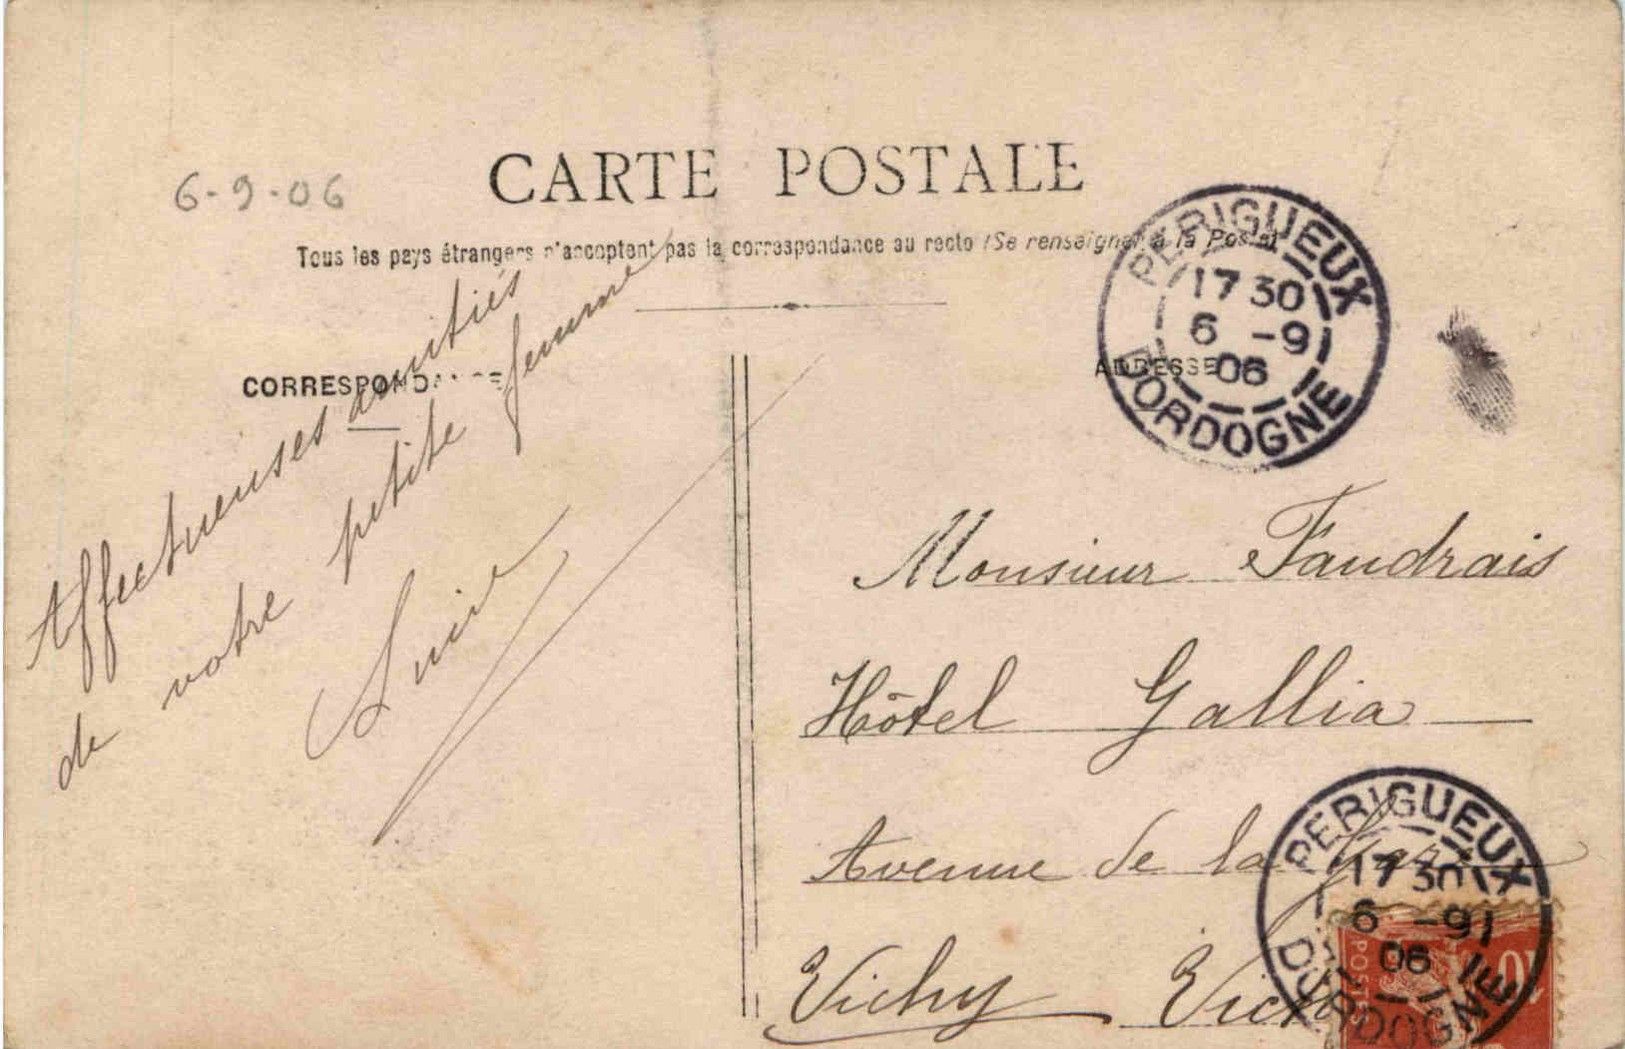 6-9-06
CARTE POSTALE
Tous les pays étrangers n'acceptent pas la correspondance au recto (Se renseigner à la Poste)
CORRESPONDANCE
ADRESSE
PERIGUEUX
17 30
6 -9
06
DORDOGNE
Affectueuses amitiés
de votre petite femme
Monsieur Faudrais
Hôtel Gallia
Avenue de la Gare
Vichy
PERIGUEUX
17 30
6 -9
06
DORDOGNE
10
POSTES